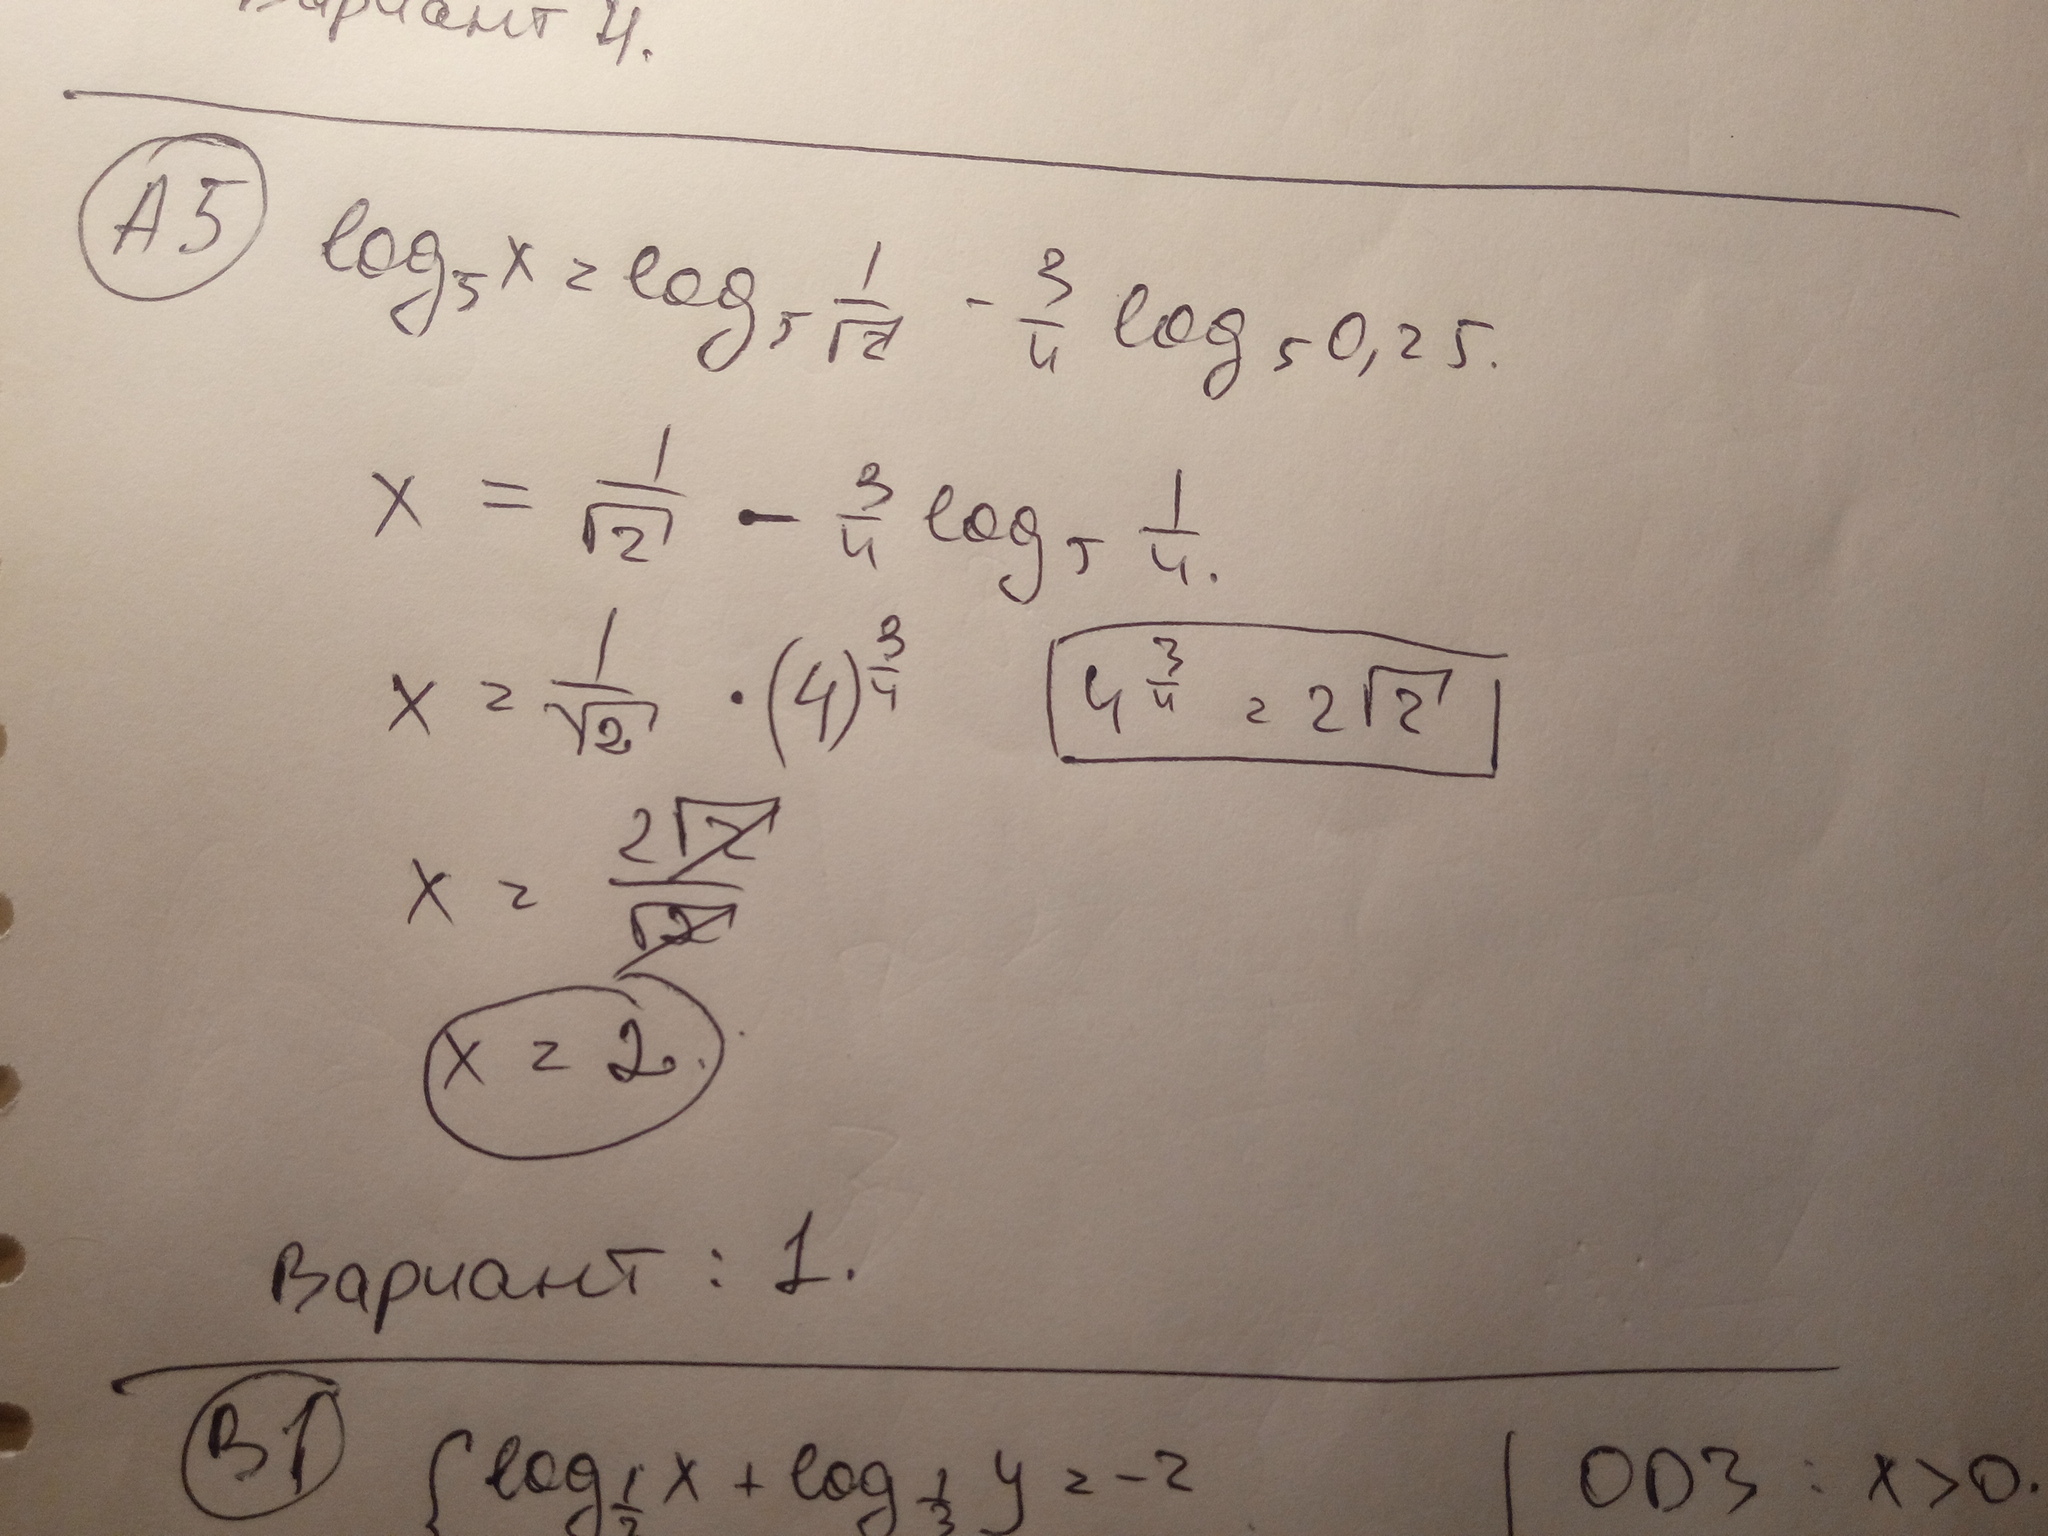 Вариант 4.
A5 log₅x = log₅ 1/√2 - 3/4 log₅ 0,25.
x = 1/√2 - 3/4 log₅ 1/4.
x = 1/√2 · (4)^3/4 4^3/4 = 2√2
x = 2√2/√2
x = 2.
Вариант : 1.
B1 { log_1/2 x + log_1/3 y = -2 | ОДЗ : x>0.